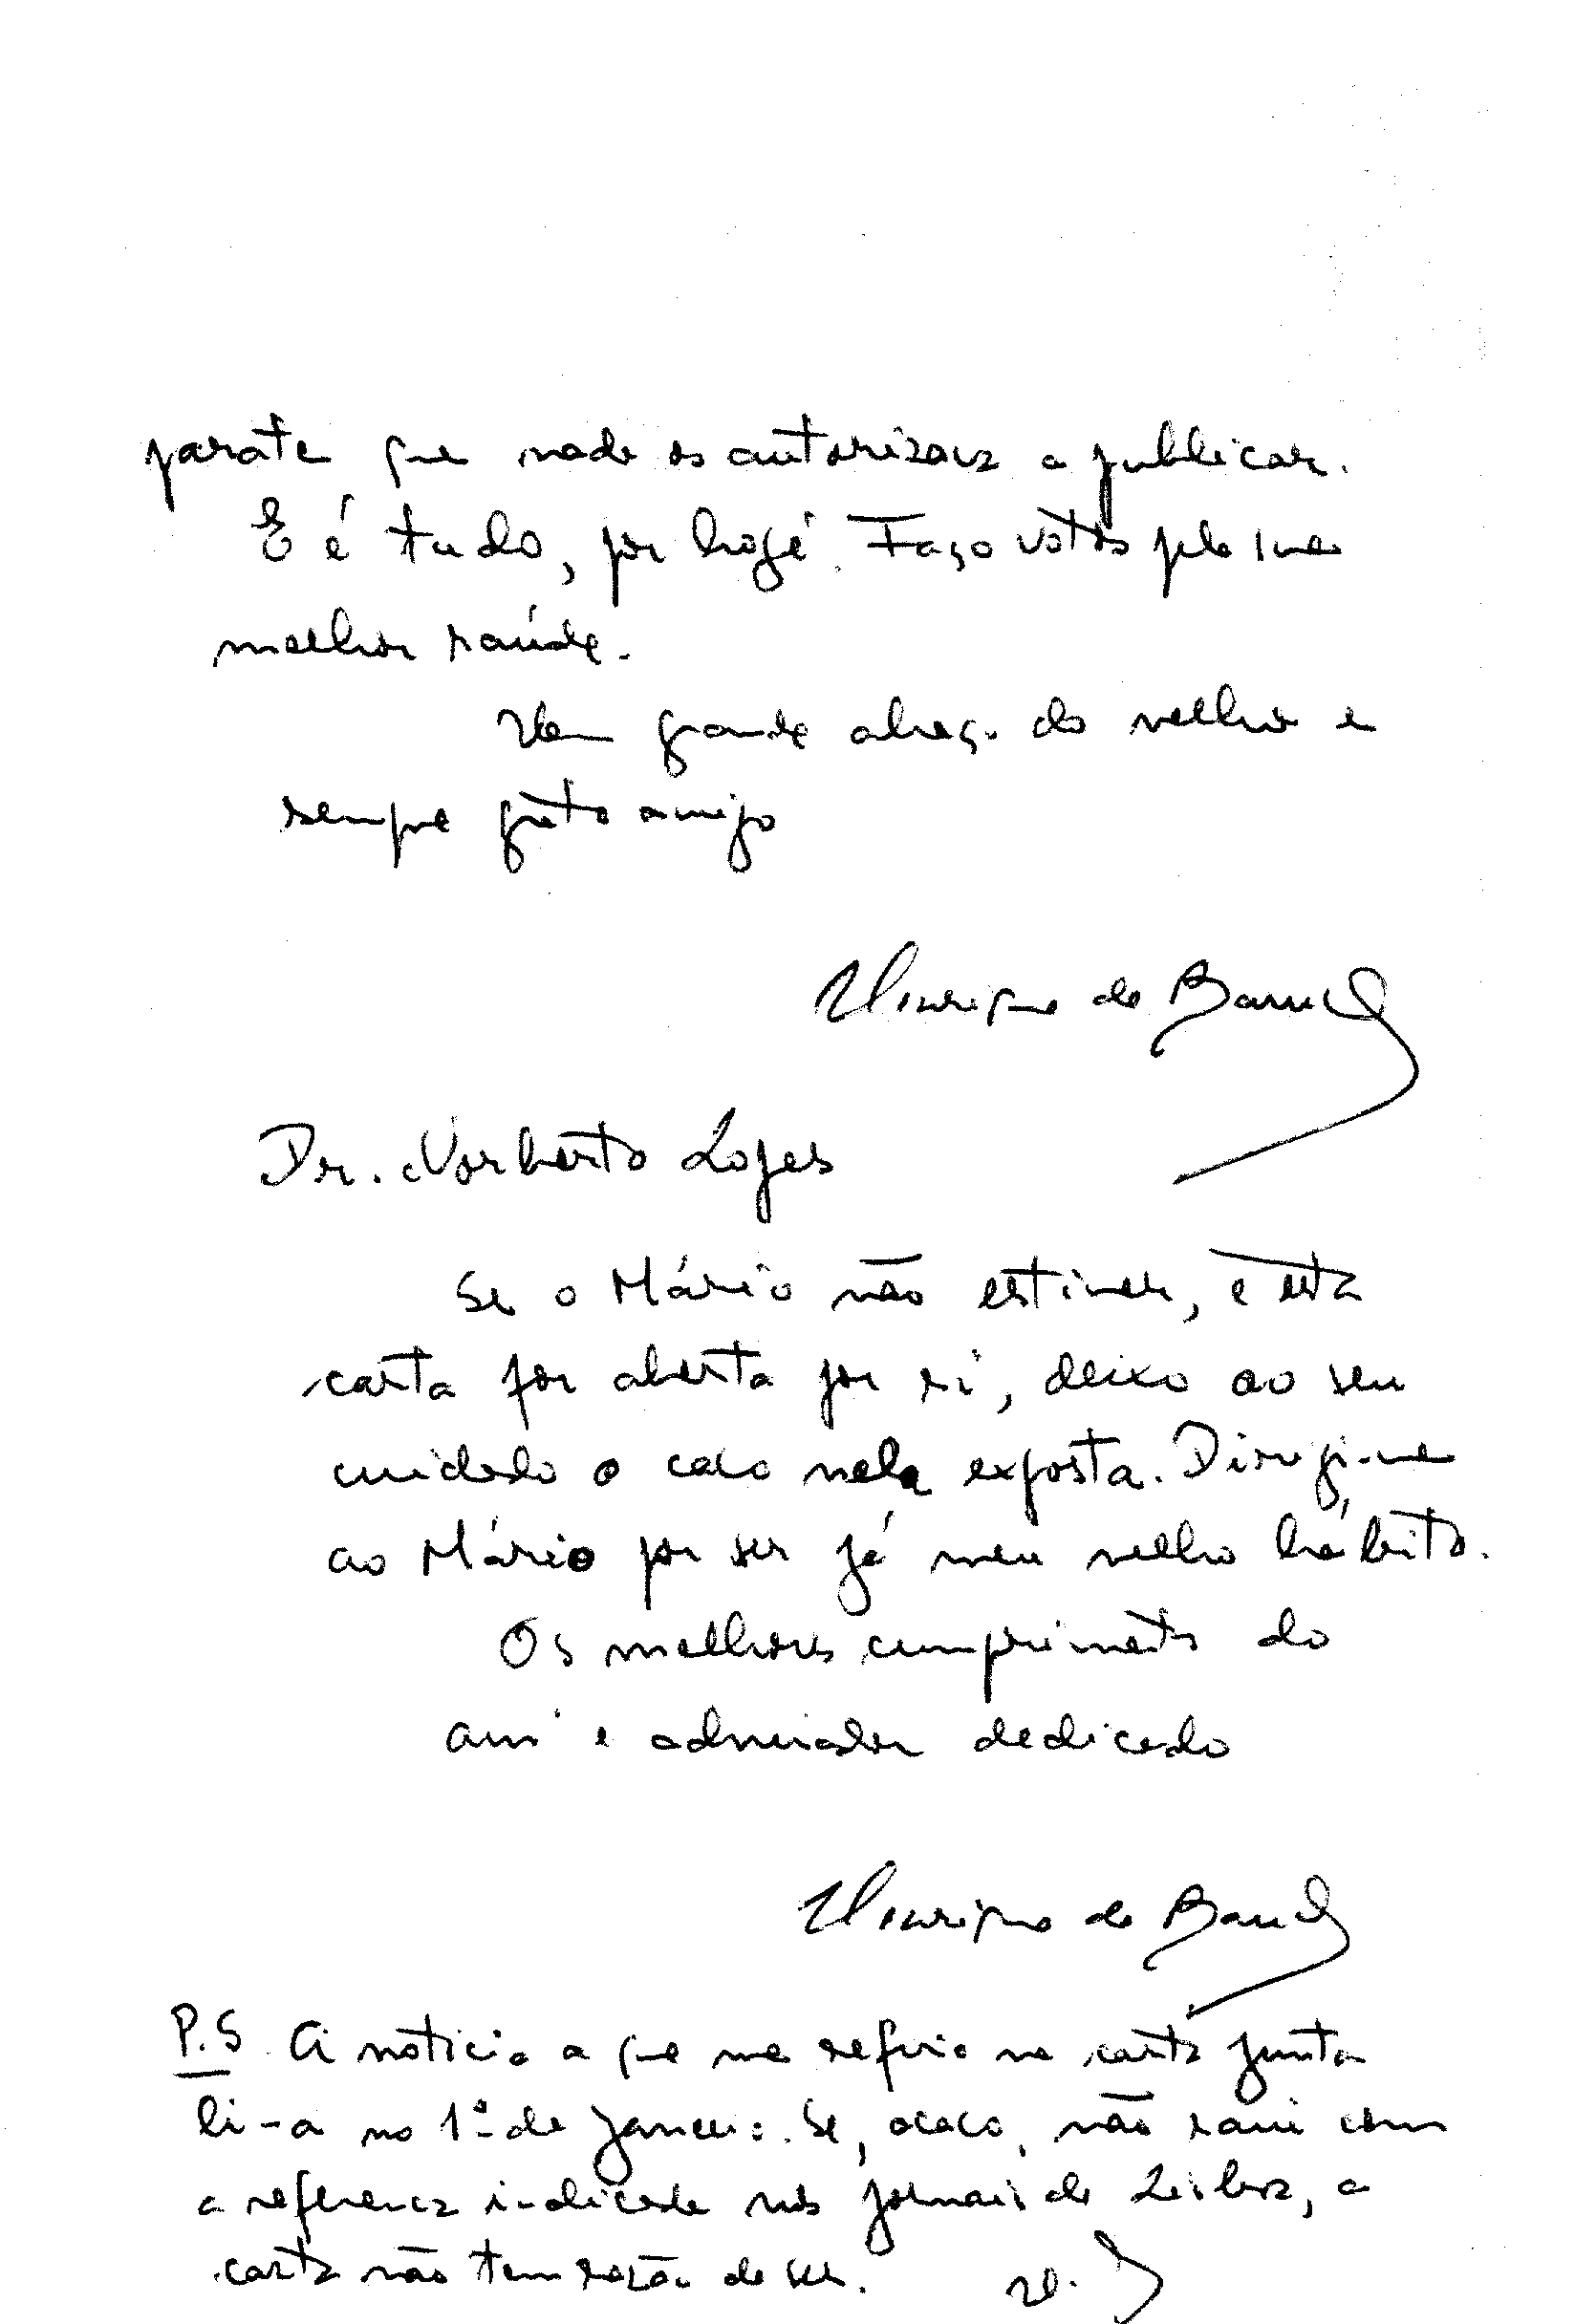 parate que nada os autorizava a publicar.
E é tudo, por hoje. Faço votos pela sua
melhor saúde.
Um grande abraço do velho e
sempre grato amigo
Henrique de Barros
Dr. Norberto Lopes
Se o Mário não estiver, e esta
carta for aberta por si, deixo ao seu
cuidado o caso nela exposta. Dirigi-me
ao Mário por ser já meu velho hábito.
Os melhores cumprimentos do
am.º e admirador dedicado
Henrique de Barros
P.S. A notícia a que me refiro na carta junta
li-a no 1º de Janeiro. Se, acaso, não saiu com
a referência indicada nos jornais de Lisboa, a
carta não tem razão de ser. H. B.